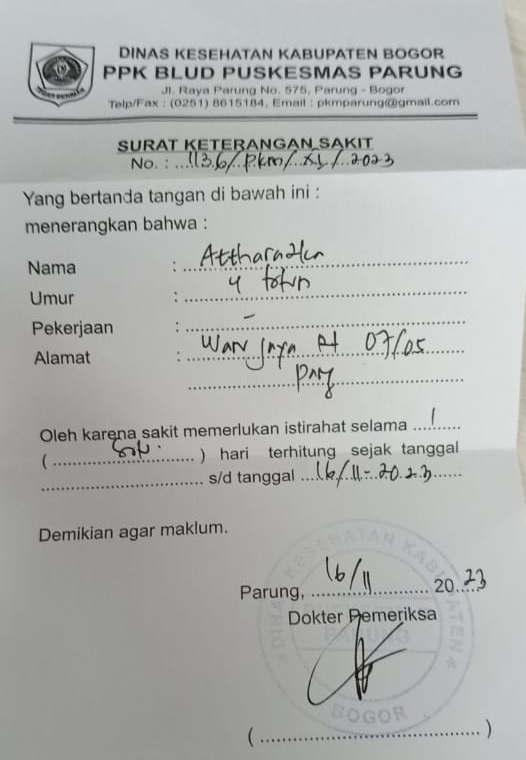 DINAS KESEHATAN KABUPATEN BOGOR
PPK BLUD PUSKESMAS PARUNG
Jl. Raya Parung No. 575, Parung - Bogor
Telp/Fax : (0251) 8615184, Email : pkmparung@gmail.com
SURAT KETERANGAN SAKIT
No. : ...1136/.PKM/..XI./..2023
Yang bertanda tangan di bawah ini :
menerangkan bahwa :
Nama :
Umur : 4 tahun
Pekerjaan : -
Alamat : Waru Jaya Rt 07/05
Prg
Oleh karena sakit memerlukan istirahat selama ...1...
( ...satu... ) hari terhitung sejak tanggal
... s/d tanggal ...16/.11-.2023...
Demikian agar maklum.
Parung, ...16/11... 20..23
Dokter Pemeriksa
DINAS KESEHATAN KABUPATEN
BOGOR
( ... )